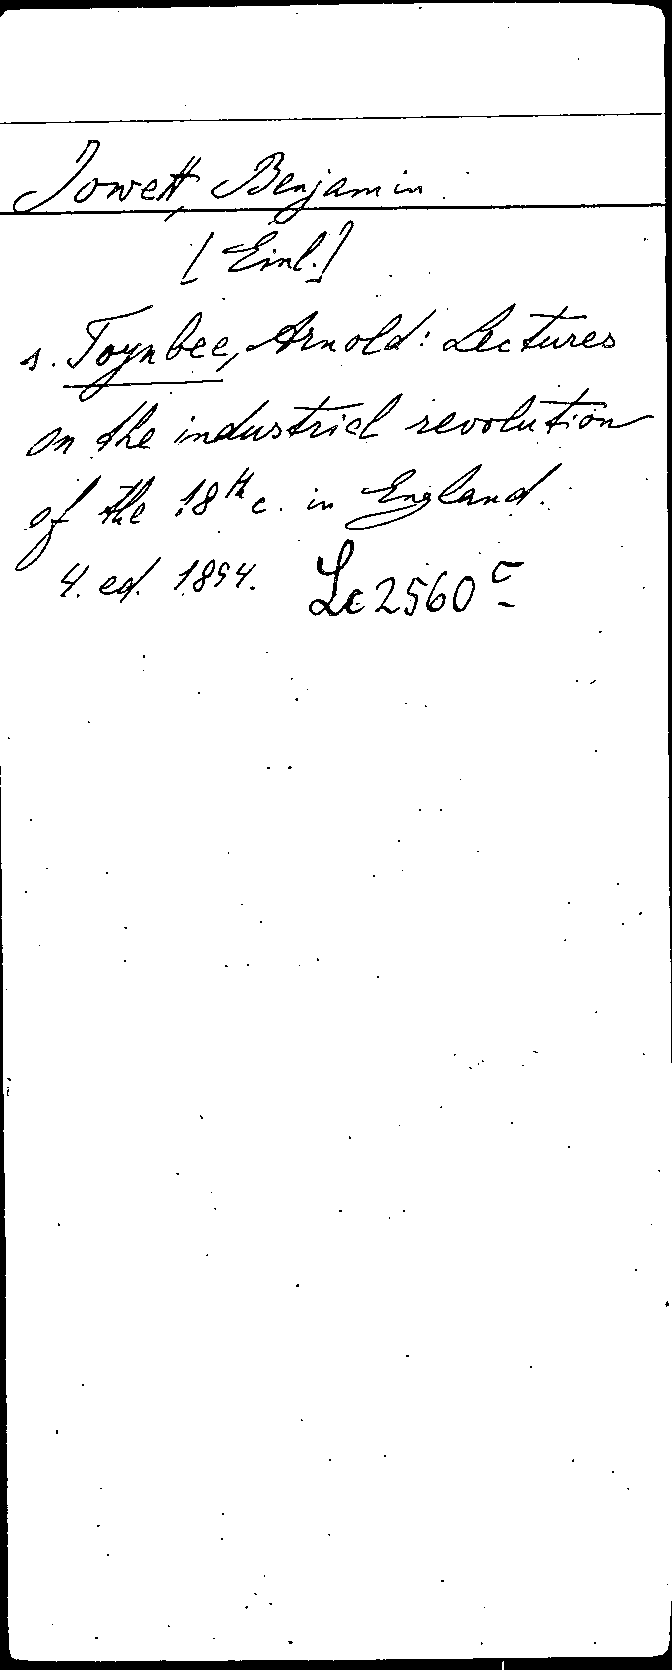 Jowett, Benjamin
[Einl.]
s. Toynbee, Arnold: Lectures
on the industrial revolution
of the 18th c. in England.
4. ed. 1894. Lc 2560 c